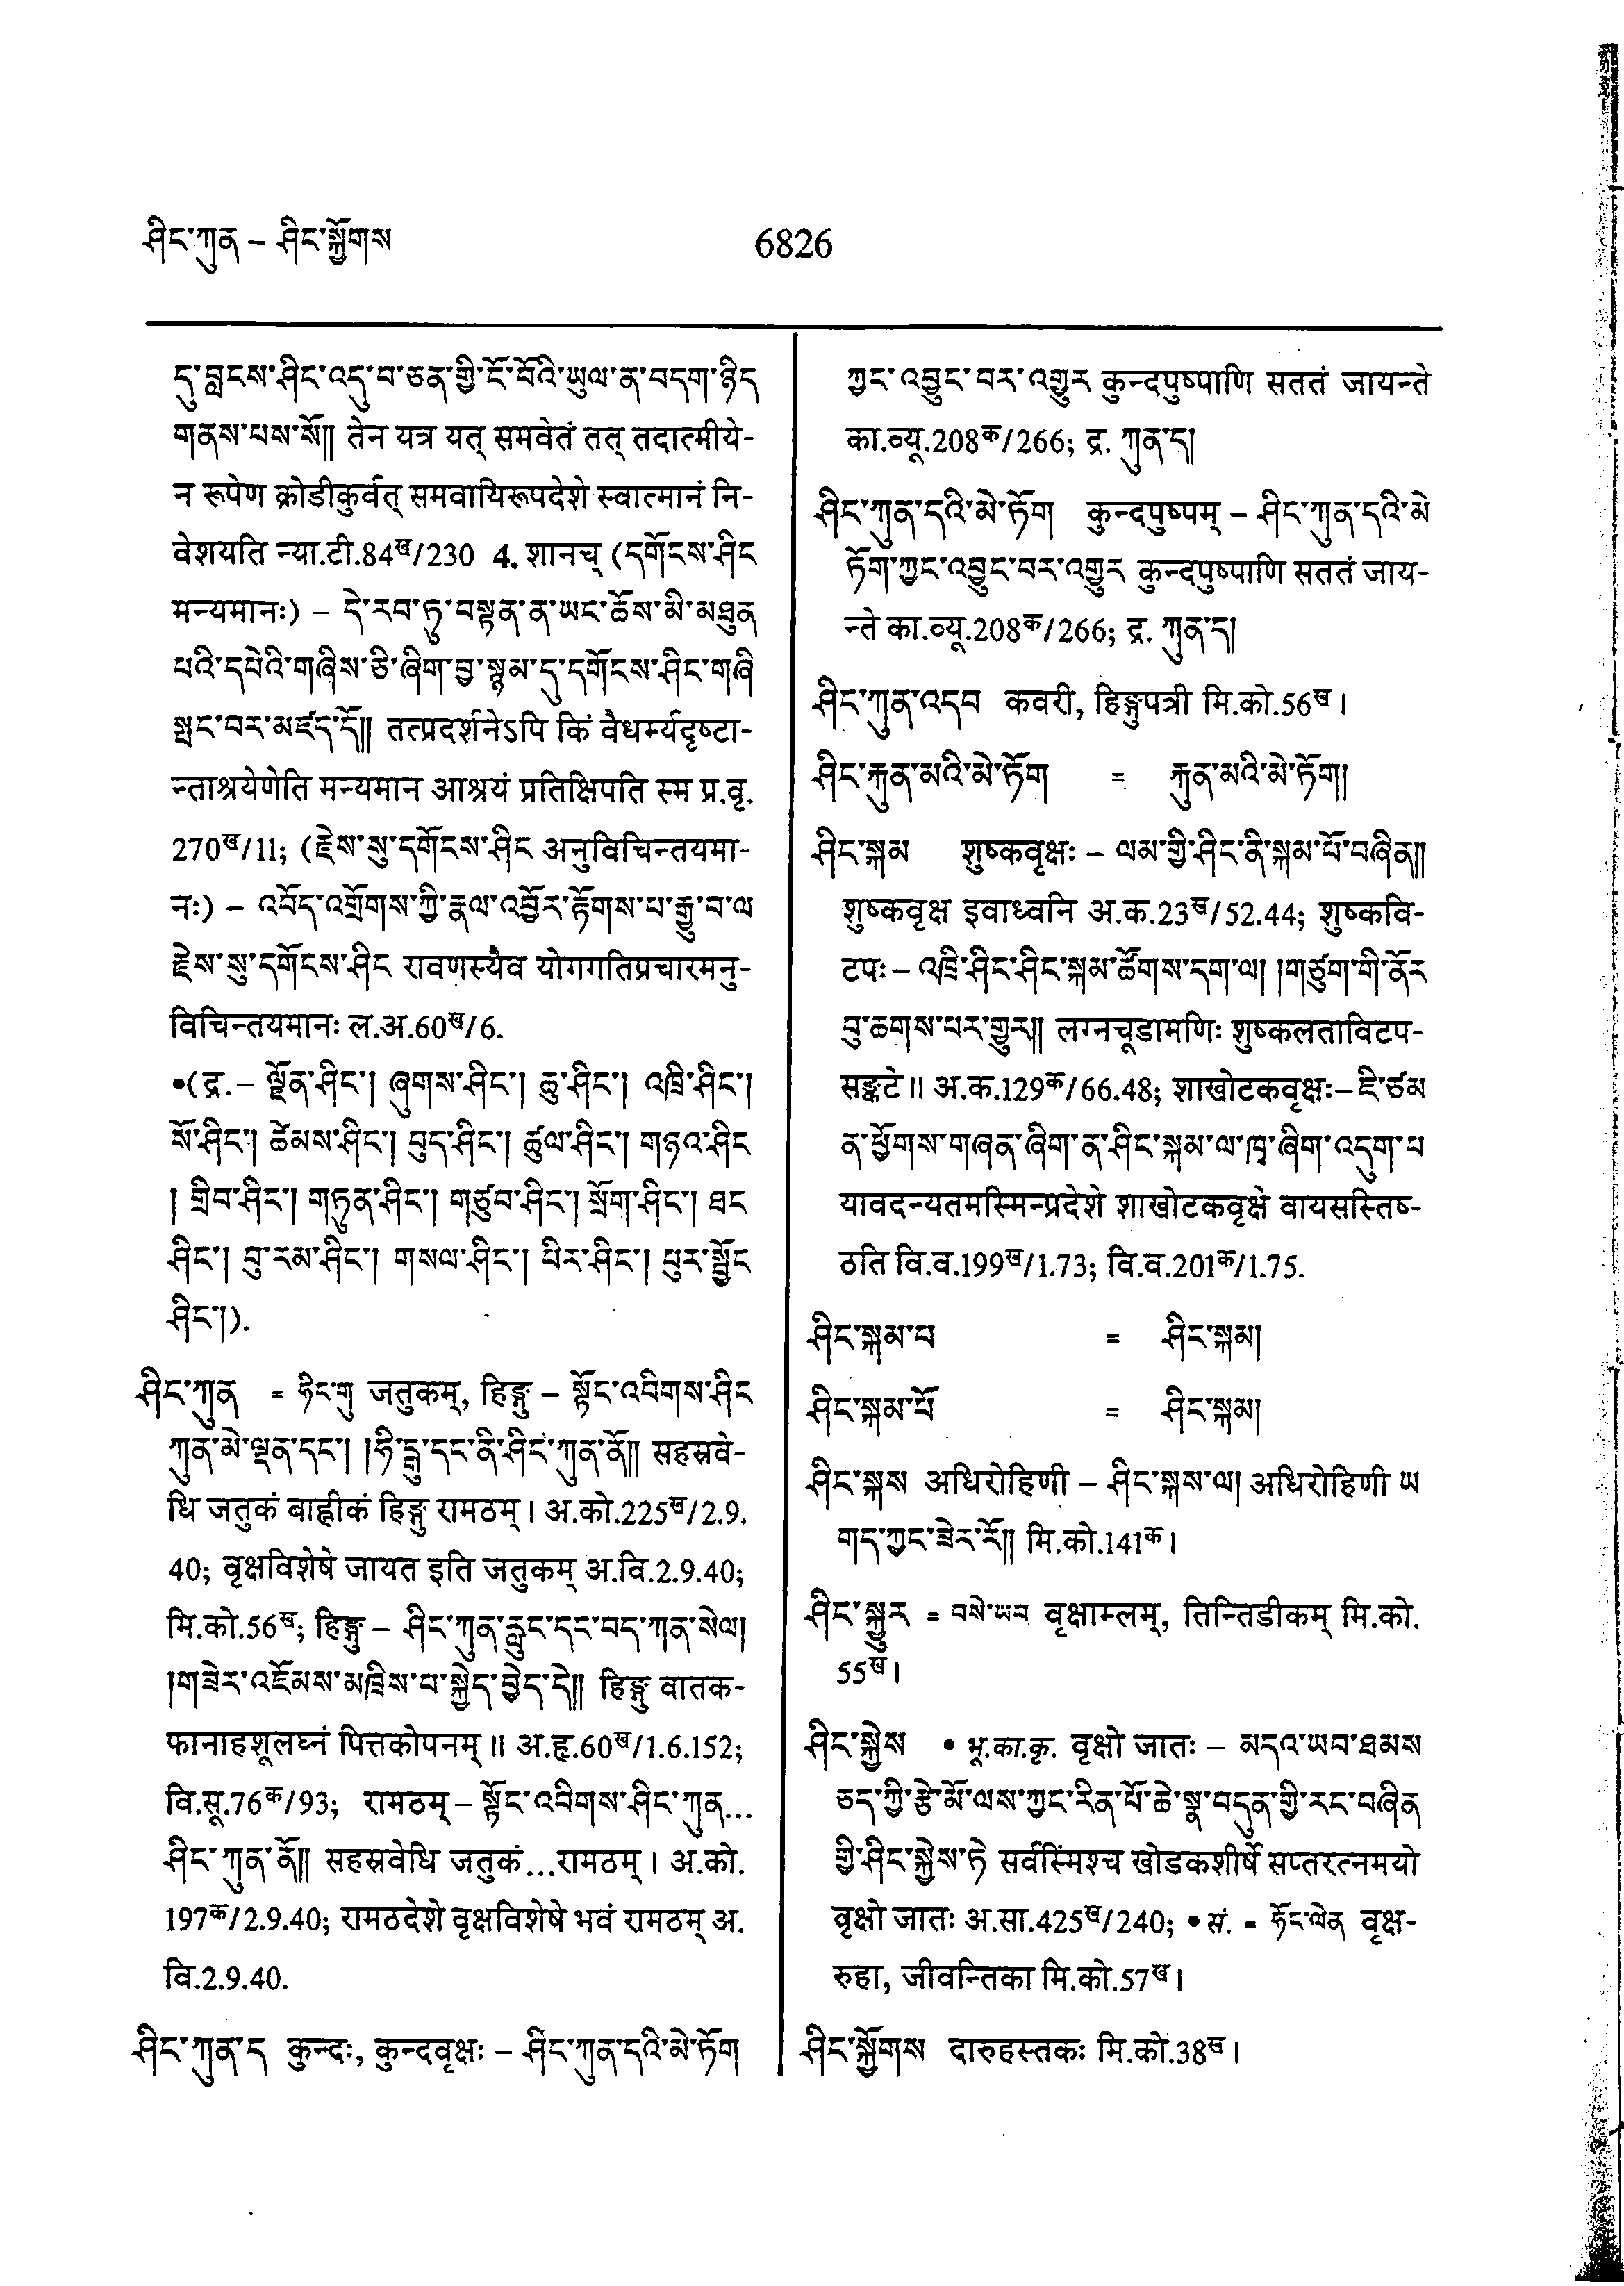 ཤིང་ཀུན – ཤིང་སྐྱོགས
6826
དུ་བླངས་ཤིང་འདུ་བ་ཅན་གྱི་ངོ་བོའི་ཡུལ་ན་བདག་ཉིད
གནས་པས་སོ།། तेन यत्र यत् समवेतं तत् तदात्मीये-
न रूपेण क्रोडीकुर्वत् समवायिरूपदेशे स्वात्मानं नि-
वेशयति न्या.टी.84ख/230 4. शानच् (དགོངས་ཤིང
मन्यमानः) – དེ་རབ་ཏུ་བསྟན་ན་ཡང་ཆོས་མི་མཐུན
པའི་དཔེའི་གཞིས་ཅི་ཞིག་བྱ་སྙམ་དུ་དགོངས་ཤིང་གཞི
སྤང་བར་མཛད་དོ།། तत्प्रदर्शनेऽपि किं वैधर्म्यदृष्टा-
न्ताश्रयेणेति मन्यमान आश्रयं प्रतिक्षिपति स्म प्र.वृ.
270ख/11; (རྗེས་སུ་དགོངས་ཤིང अनुविचिन्तयमा-
नः) – འབོད་འགྲོགས་ཀྱི་རྣལ་འབྱོར་རྟོགས་པ་རྒྱུ་བ་ལ
རྗེས་སུ་དགོངས་ཤིང रावणस्यैव योगगतिप्रचारमनु-
विचिन्तयमानः ल.अ.60ख/6.
•(द्र.– ལྗོན་ཤིང་། ཞུགས་ཤིང་། ཆུ་ཤིང་། འཁྲི་ཤིང་།
སོ་ཤིང་། ཚེམས་ཤིང་། བུད་ཤིང་། ཚུལ་ཤིང་། གཉའ་ཤིང
། གྲིབ་ཤིང་། གཏུན་ཤིང་། གཙུབ་ཤིང་། སྲོག་ཤིང་། ཐང
ཤིང་། བུ་རམ་ཤིང་། གསལ་ཤིང་། པིར་ཤིང་། ཕུར་སྦྱོང
ཤིང་།).
ཤིང་ཀུན = ཧིང་གུ जतुकम्, हिङ्गु – སྟོང་འབིགས་ཤིང
ཀུན་མེ་ལྡན་དང་། །ཧི་ངྒུ་དང་ནི་ཤིང་ཀུན་ནོ།། सहस्रवे-
धि जतुकं बाह्लीकं हिङ्गु रामठम्। अ.को.225ख/2.9.
40; वृक्षविशेषे जायत इति जतुकम् अ.वि.2.9.40;
मि.को.56ख; हिङ्गु – ཤིང་ཀུན་རླུང་དང་བད་ཀན་སེལ།
།གཟེར་འཇོམས་མཁྲིས་པ་སྐྱེད་བྱེད་དེ།། हिङ्गु वातक-
फानाहशूलघ्नं पित्तकोपनम्॥ अ.हृ.60ख/1.6.152;
वि.सू.76क/93; रामठम् – སྟོང་འབིགས་ཤིང་ཀུན...
ཤིང་ཀུན་ནོ།། सहस्रवेधि जतुकं...रामठम्। अ.को.
197क/2.9.40; रामठदेशे वृक्षविशेषे भवं रामठम् अ.
वि.2.9.40.
ཤིང་ཀུན་ད कुन्दः, कुन्दवृक्षः – ཤིང་ཀུན་དའི་མེ་ཏོག
ཀྱང་འབྱུང་བར་འགྱུར कुन्दपुष्पाणि सततं जायन्ते
का.व्यू.208क/266; द्र. ཀུན་ད།
ཤིང་ཀུན་དའི་མེ་ཏོག कुन्दपुष्पम् – ཤིང་ཀུན་དའི་མེ
ཏོག་ཀྱང་འབྱུང་བར་འགྱུར कुन्दपुष्पाणि सततं जाय-
न्ते का.व्यू.208क/266; द्र. ཀུན་ད།
ཤིང་ཀུན་འདབ कवरी, हिङ्गुपत्री मि.को.56ख।
ཤིང་རྐུན་མའི་མེ་ཏོག = རྐུན་མའི་མེ་ཏོག།
ཤིང་སྐམ शुष्कवृक्षः – ལམ་གྱི་ཤིང་ནི་སྐམ་པོ་བཞིན།།
शुष्कवृक्ष इवाध्वनि अ.क.23ख/52.44; शुष्कवि-
टपः – འཁྲི་ཤིང་ཤིང་སྐམ་ཚོགས་དག་ལ། །གཙུག་གི་ནོར
བུ་ཆགས་པར་གྱུར།། लग्नचूडामणिः शुष्कलताविटप-
सङ्कटे॥ अ.क.129क/66.48; शाखोटकवृक्षः– ཇི་ཙམ
ན་ཕྱོགས་གཞན་ཞིག་ན་ཤིང་སྐམ་ལ་ཁྭ་ཞིག་འདུག་པ
यावदन्यतमस्मिन्प्रदेशे शाखोटकवृक्षे वायसस्तिष्-
ठति वि.व.199ख/1.73; वि.व.201क/1.75.
ཤིང་སྐམ་པ = ཤིང་སྐམ།
ཤིང་སྐམ་པོ = ཤིང་སྐམ།
ཤིང་སྐས अधिरोहिणी – ཤིང་སྐས་ལ། अधिरोहिणी ཡ
གད་ཀྱང་ཟེར་རོ།། मि.को.141क।
ཤིང་སྐྱུར = བསེ་ཡབ वृक्षाम्लम्, तिन्तिडीकम् मि.को.
55ख।
ཤིང་སྐྱེས • भू.का.कृ. वृक्षो जातः – མདའ་ཡབ་ཐམས
ཅད་ཀྱི་རྩེ་མོ་ལས་ཀྱང་རིན་པོ་ཆེ་སྣ་བདུན་གྱི་རང་བཞིན
གྱི་ཤིང་སྐྱེས་ཏེ सर्वस्मिंश्च खोडकशीर्षे सप्तरत्नमयो
वृक्षो जातः अ.सा.425ख/240; • सं. = ཧོང་ལེན वृक्ष-
रुहा, जीवन्तिका मि.को.57ख।
ཤིང་སྐྱོགས दारुहस्तकः मि.को.38ख।